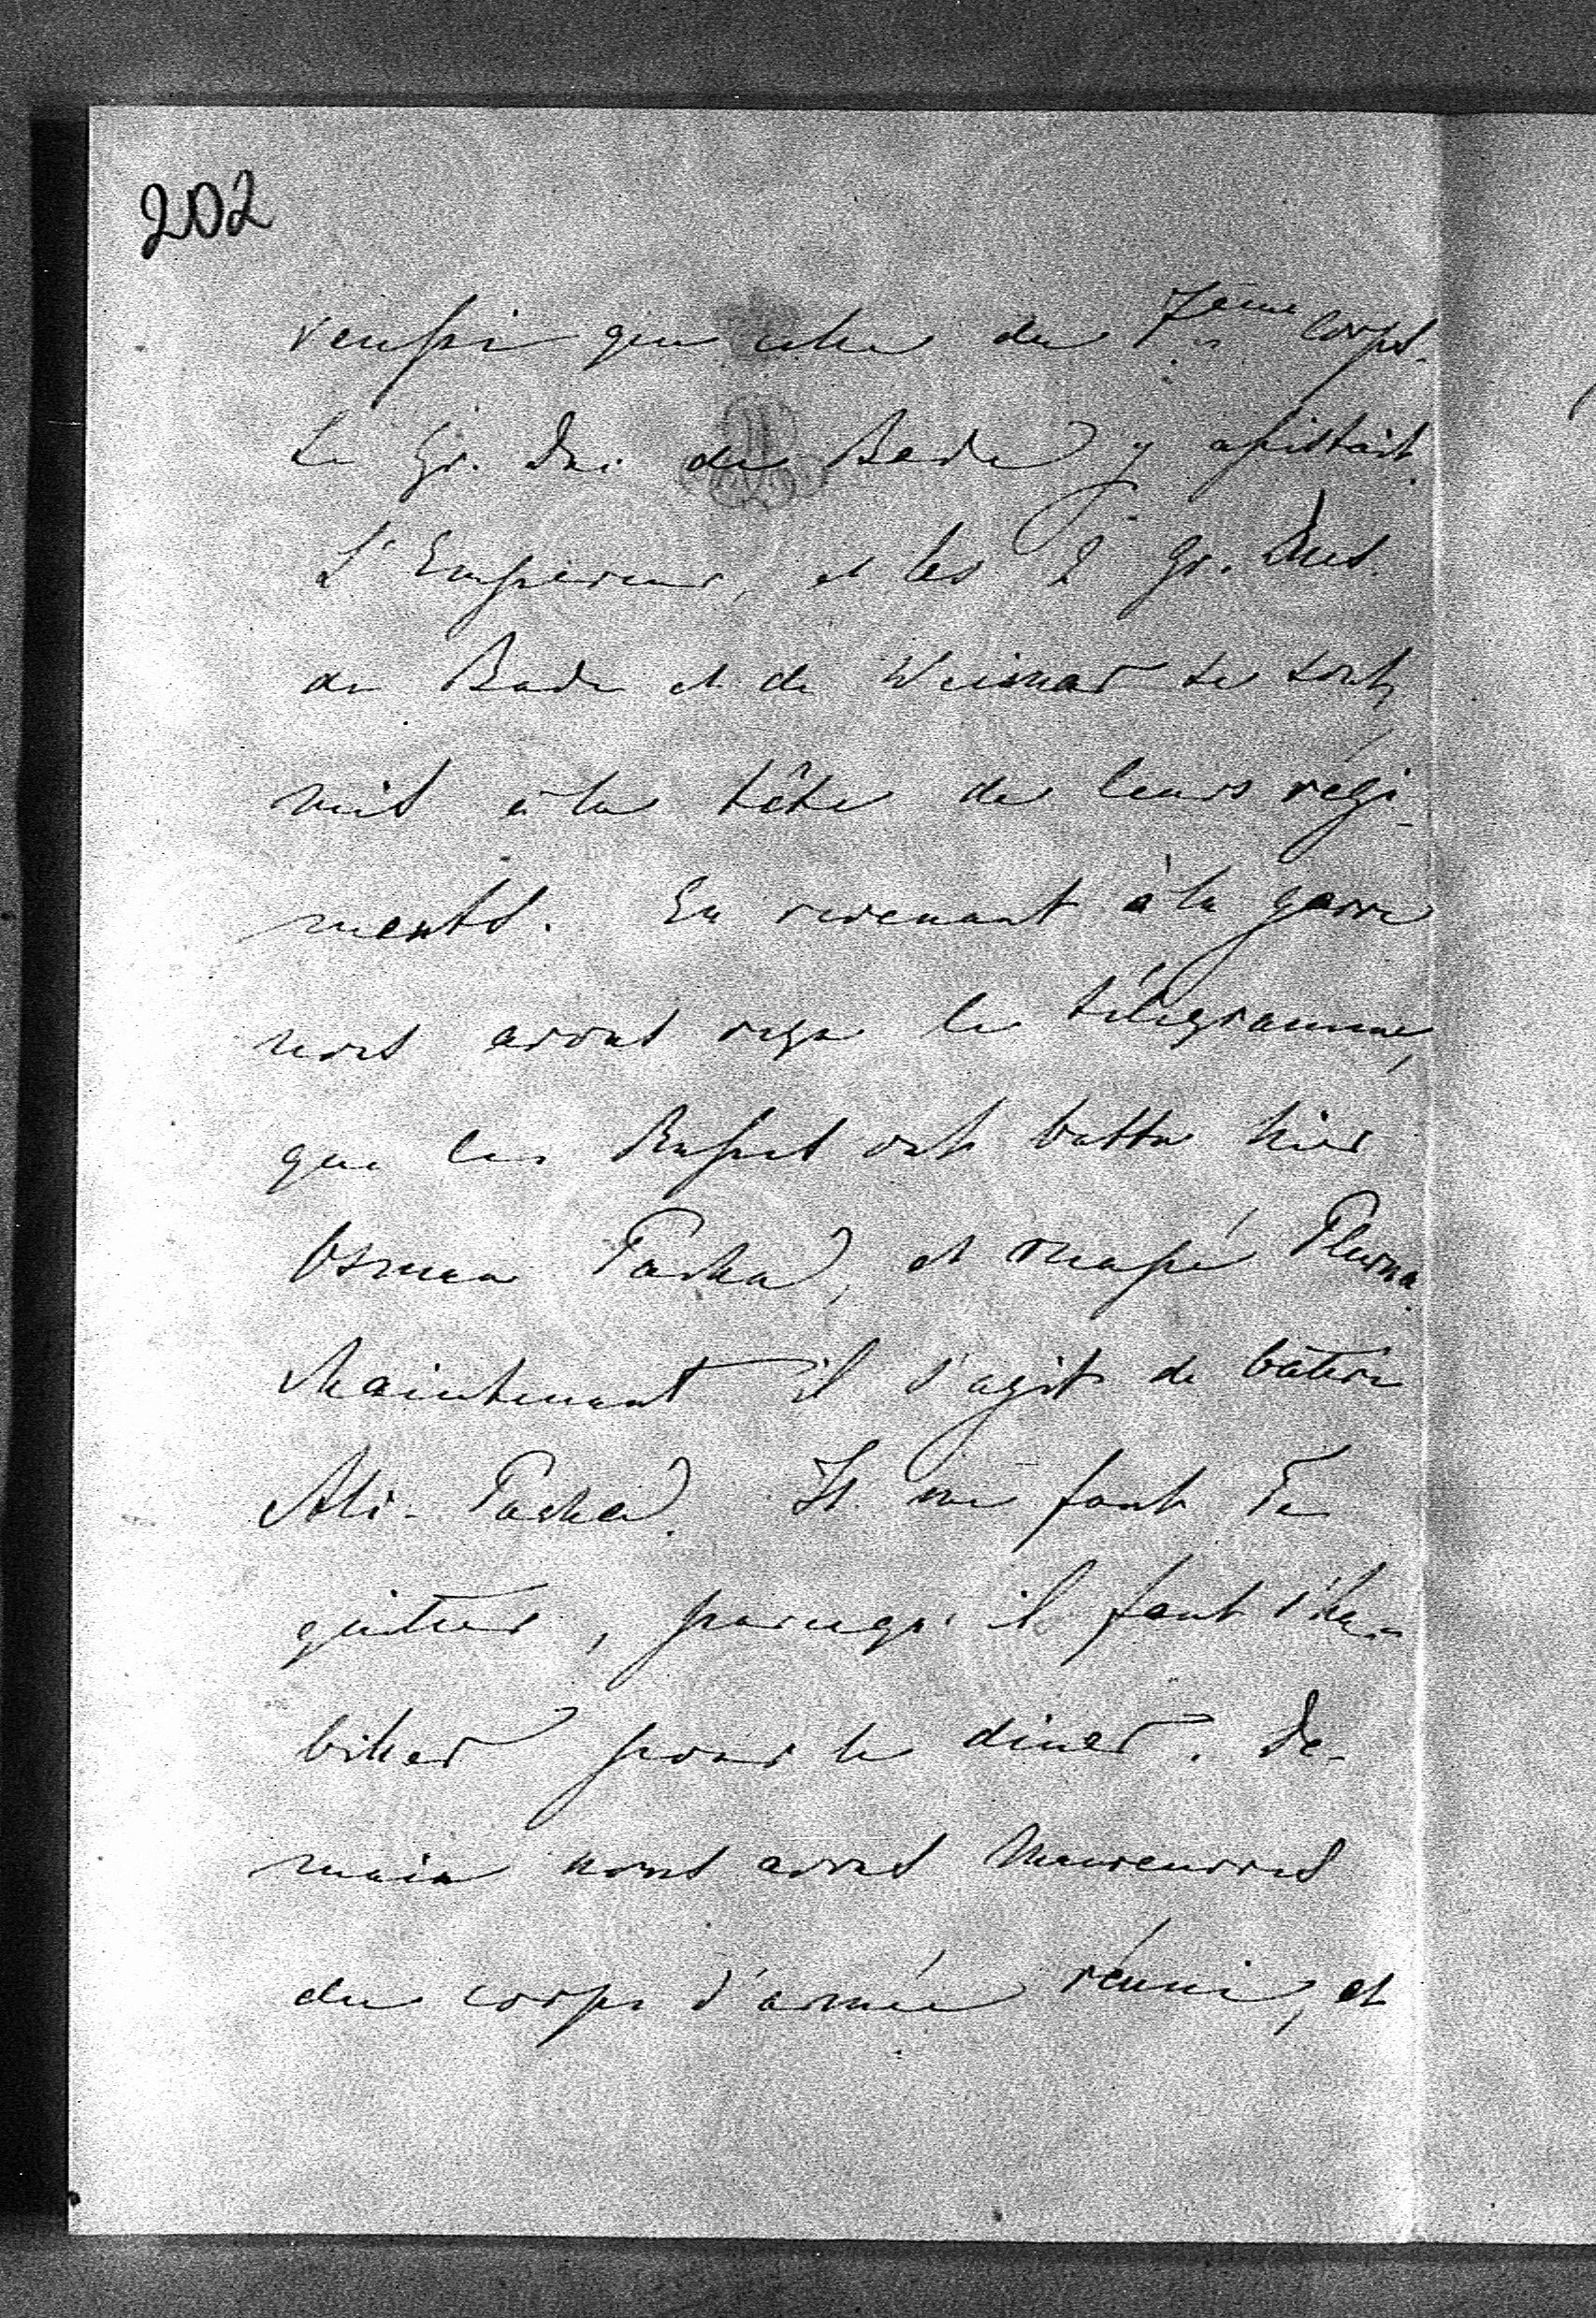 202
reussi que celle du 7ème corps.
Le Gr. Duc de Bade y assistait.
L'Empereur, et les 2 Gr. Ducs
de Bade et de Weimar se sont
mis à la tête de leurs régi-
ments. En revenant à la garre
nous avons reçu le télégramme,
que les Russes ont battu hier
Osman Pacha, et occupé Plevna.
Maintenant il s'agit de battre
Ali-Pacha. Il me faut Te
quitter, parcequ'il faut s'ha-
biller pour le diner. De-
main nous avons Manoeuvres
du corps d'armée réuni, et